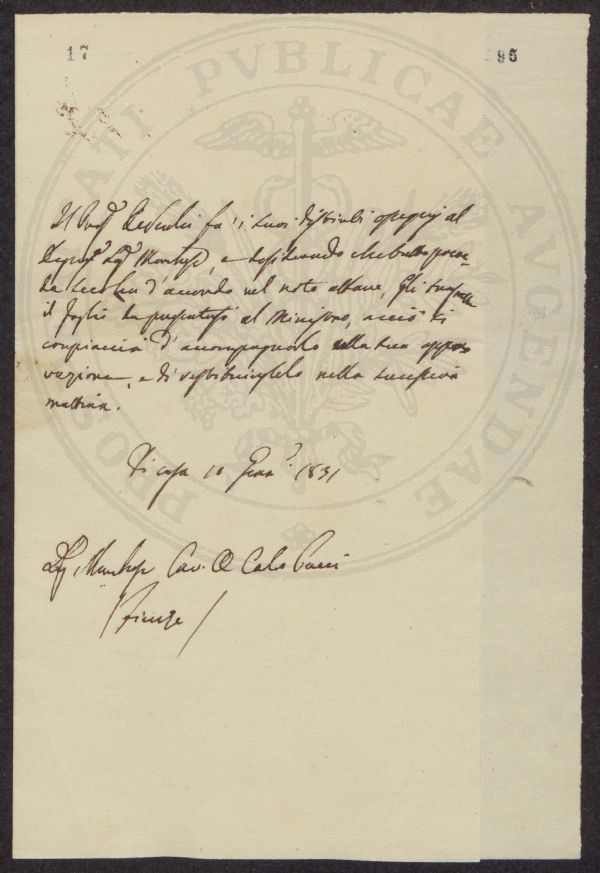 17
PROSPERITATI PVBLICAE AVGENDAE
fa' i suoi distinti ossequj al
Sig.r Marchese, e desiderando che tutto proce-
da d'accordo nel noto affare, gli
il foglio da al Ministro, acciò si
compiaccia d'accompagnarlo alla sua appro-
vazione, e di restituirglielo nella successiva
mattina.
Di casa 10 Genn.o 1831
Sig. Marchese Cav. Carlo Pucci
Firenze